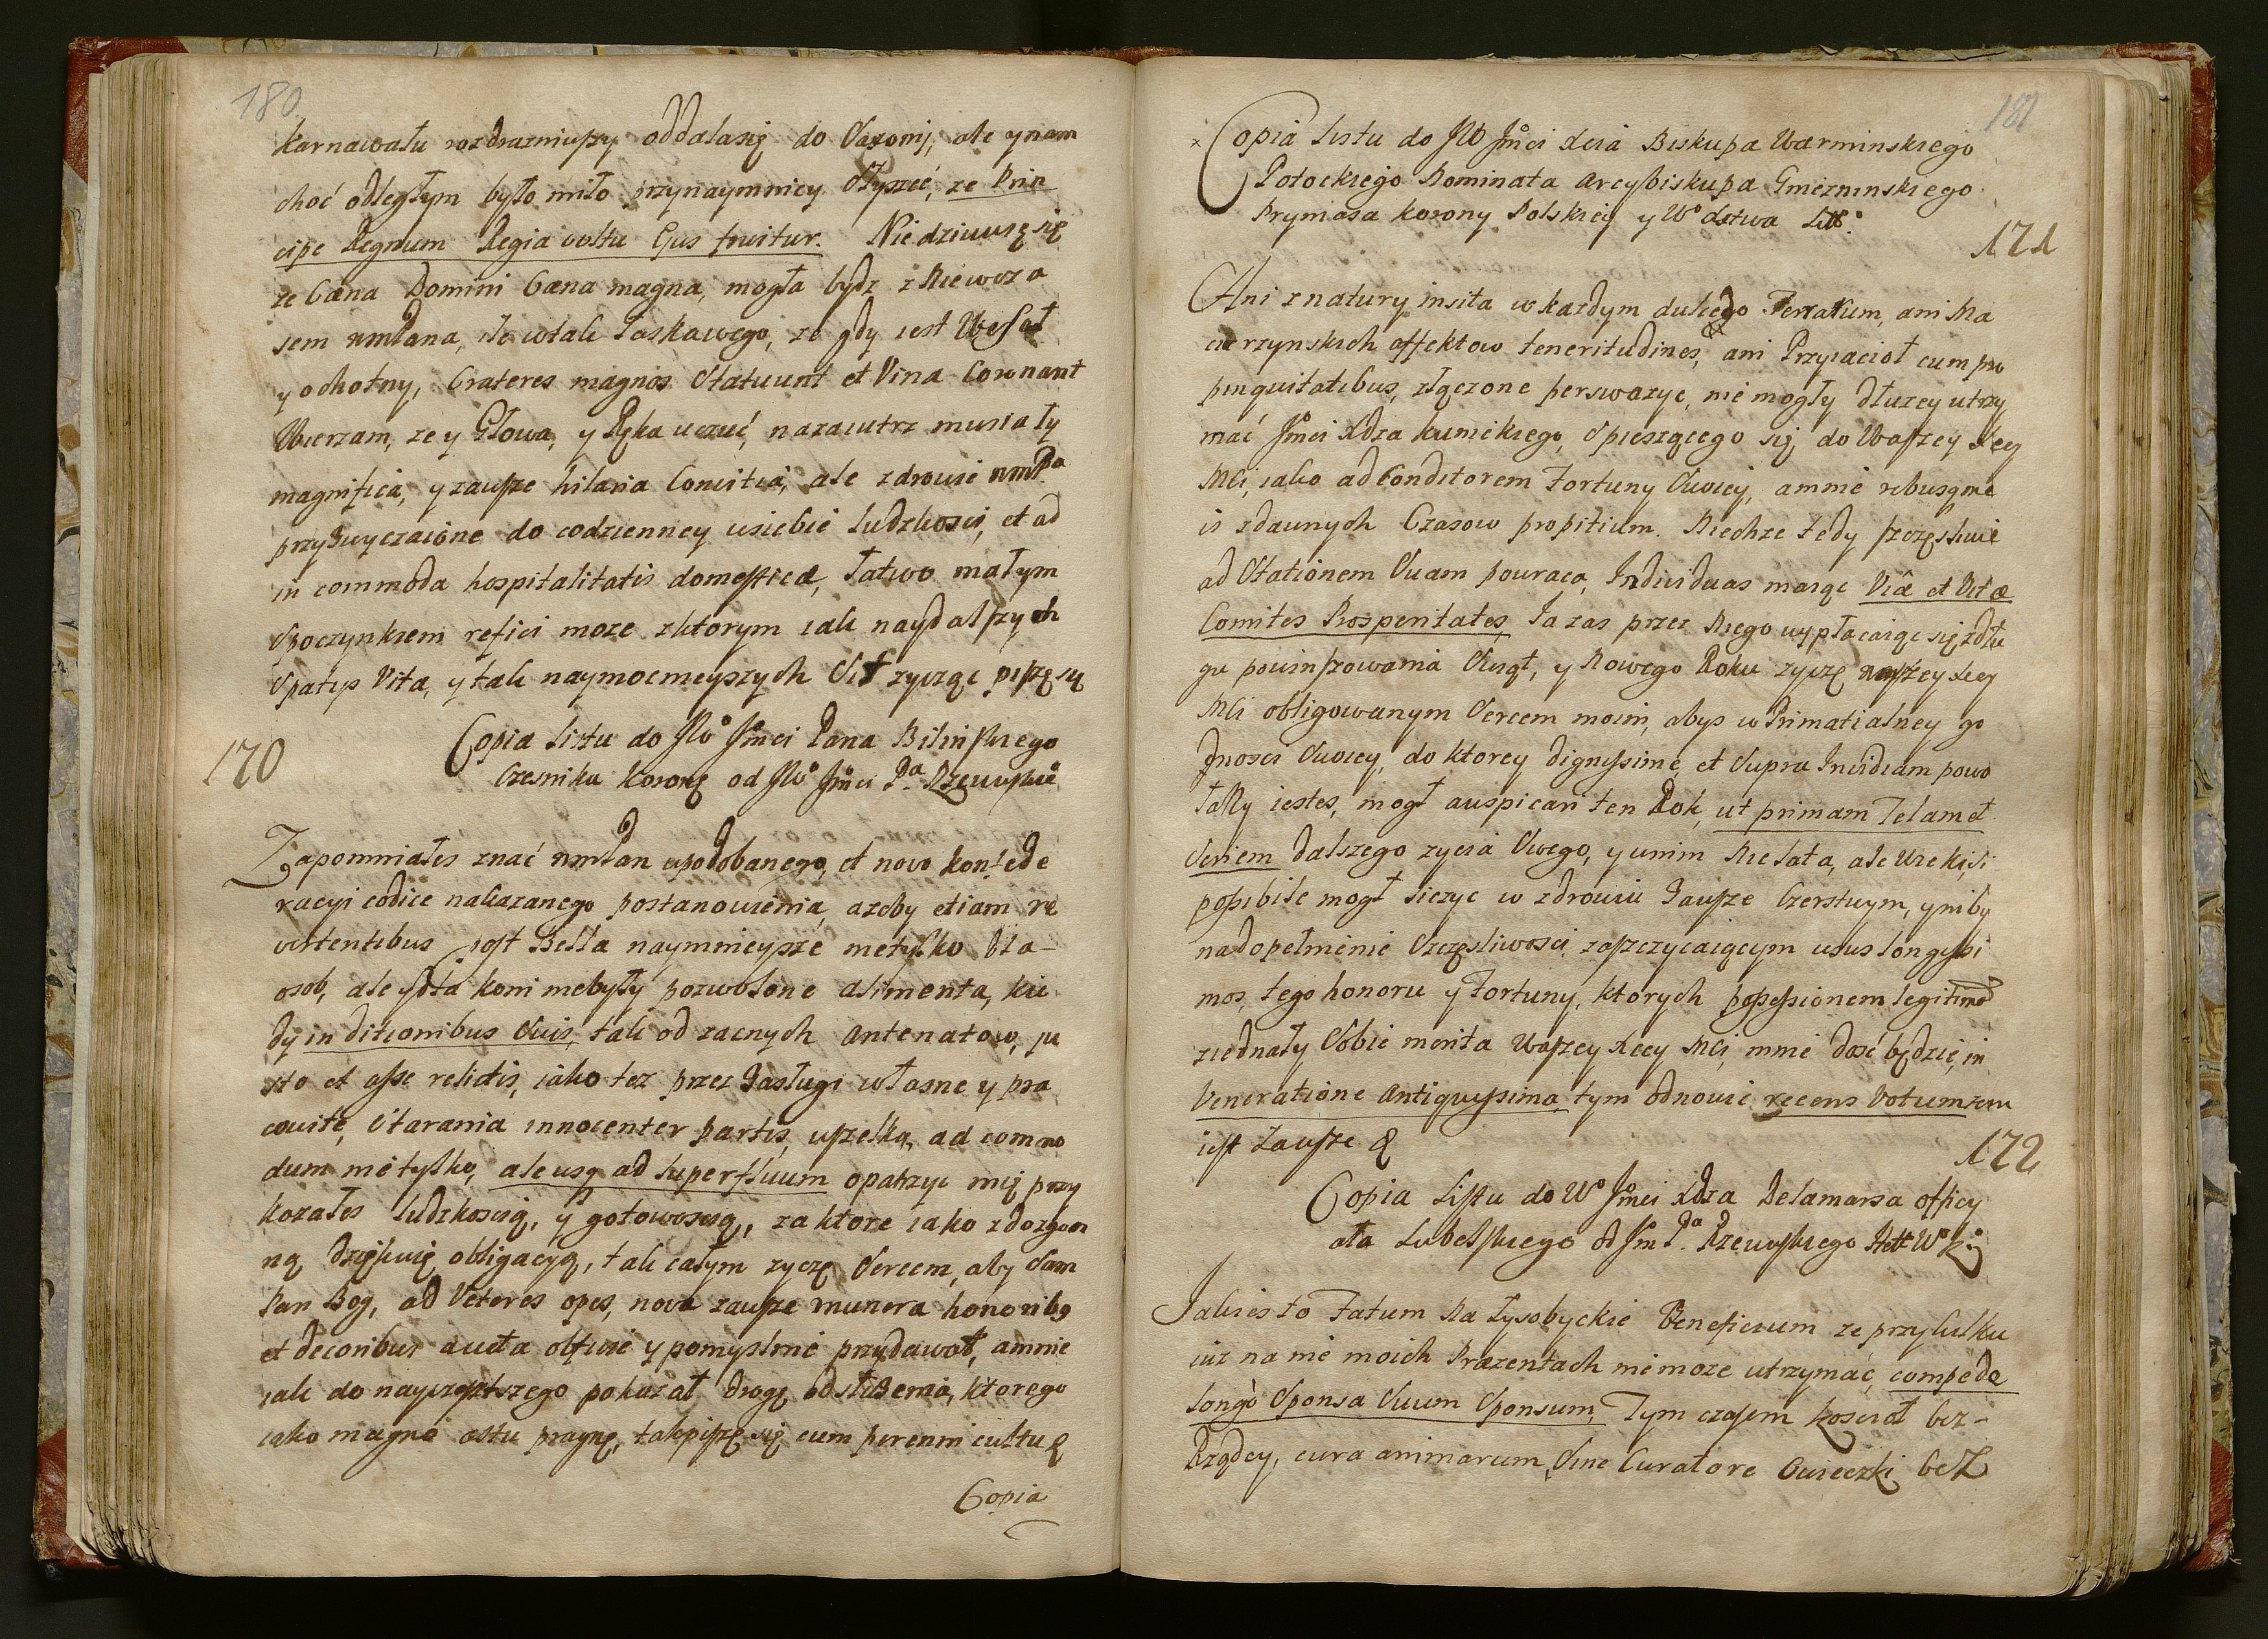 180
karnawału rozdrazniwszy oddalasię do Saxonij, ale ynam
choć odległym było miło przynaymniey słyszeć, ze Prin
cipe Regnum Regia vultu Eius fruitur. Niedziwuię się
ze Cæna Domini Cæna magna, mogła bydz z Niewcza
sem wmPana, ile wtak łaskawego, ze gdy iest Wesoł
y ochotny, Crateres magnos Statuunt et Vina Coronant
Wierzam, ze y Głowa, y Ręka uczuć, nazaiutrz musiały
magnifica, y zawsze hilaria Convivia, ale zdrowie wmPa
przyzwyczaione do codzienney usiebie ludzkosci, et ad
in commoda hospitalitatis domesticæ, łatwo małym
spoczynkiem refici moze zktorym iak naydalszych
spatys Vitæ, ytak naymocnieyszych Sił zycząc piszę się
170
Copia Listu do JW Jmci Pana Bilinskiego
Czesnika Koronę od JWo Jmci Pa Rzewuskie
Zapomniałes znać wmPan upodobanego, et novo konfede
racyi codice nakazanego postanowienia, azeby etiam re
vertentibus post Bella naymnieysze nietylko dla
osob, ale ydla koni niebyły pozwolone alimenta, kie
dy in ditionibus Suis, tak od zacnych Antenatow, ju
sto et asse relictis, iako tez przez zasługi własne y pra
cowite, Starania innocenter partis, wszelką ad commo
dum nie tylko, ale usq ad superfluum opatrzyc mię przy
kazałes ludzkoscią, y gotowoscią, za ktore iako zdozgon
ną dziękuię obligacyą, tak całym zyczę Sercem, aby Sam
Pan Bog, ad Veteres opes, nova zawsze munera honoribq
et decoribus aucta obficie y pomyslnie przydawał, amnie
iak do nayczęstszego pokazał drogę odsłużenia, ktorego
iako magno æstu pragnę, takpiszę się cum perenni cultu &
Copia
181
Copia Listu do JW Jmci Xcia Biskupa Warminskiego
Potockiego Nominata Arcybiskupa Gnieznınskiego
Prymasa korony Polskiey y Wo Xstwa Litto
171
Ani znatury insita w kazdym dulcedo Terrarum, ani Ma
cierzynskich affektow teneritudines, ani Przyiacioł cum pro
pinquitatibus, złączone perswazye, nie mogły dłuzey utrzy
mać Jmci Xdza kunickiego, Spieszącego się do Waszey Xcey
Mci, iako ad Conditorem Fortuny Swoiey, amnie rebusqme
is zdawnych Czasow propitium. Niechze tedy szczęsliwie
ad Stationem Suam powraca, Individuas maiąc Viæ et Vitæ
Comites Prosperitates, Ja zas przez Niego wypłacaiąc się zdłu
gu powinszowania Swiąt, y Nowego Roku zyczę waszey Xcey
Mci obligowanym Sercem moim, abys w Primatialney go
dnosci Swoiey, do ktorey dignissime, et Supra Invidiam powo
łany iestes, mogł auspicari ten Rok, ut primam Telam et
Seriem dalszego zycia Swego, y unim Nielata, ale Wieki, si
possibile mogł liczyc w zdrowiu zawsze Czerstwym, yniby
nadopełnienie Szczęsliwosci, zaszczycaiącym usus longissi
mos, tego honoru y Fortuny, ktorych possessionem legitimã
ziednały Sobie merita Waszey Xcey Mci, mnie dosć będzie, in
Veneratione Antiquissima tym odnowic recens Votumzem
iest Zawsze &
172
Copia Listu do Wo Jmci Xdza Delamarsa officy
ała Lubelskiego od Jm Pa Rzewuskiego Hett Wo K
Jakies to Fatum Na Łysobyckie Beneficium ze przykilku
iuz na nie moich Præzentach niemoze utrzymać, compede
longo Sponsa Suum Sponsum, Tym czasem Koscioł bez-
Rządcy, cura animarum, Sine Curatore Owieczki bez